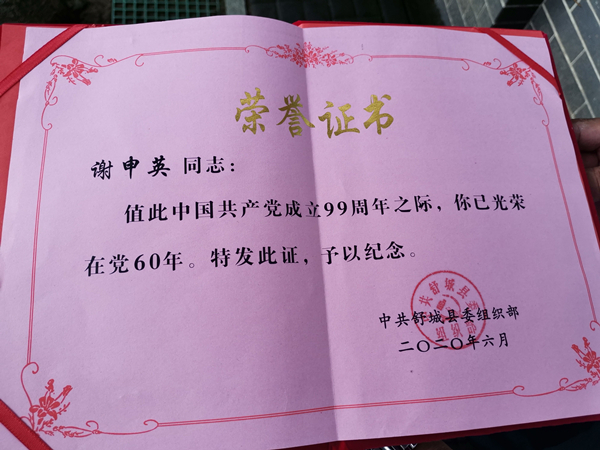 荣誉证书
谢申英 同志：
值此中国共产党成立99周年之际，你已光荣
在党60年。特发此证，予以纪念。
中共舒城县委组织部
二〇二〇年六月